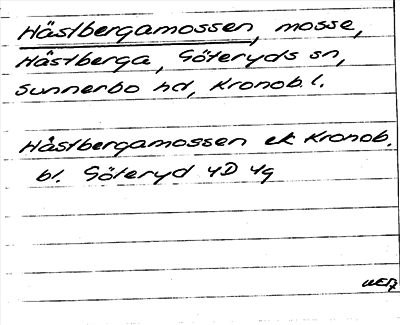 Hästbergamossen, mosse,
Hästberga, Göteryds sn,
Sunnerbo hd, Kronob. l.
Hästbergamossen ek Kronob.
bl. Göteryd 4D 4g